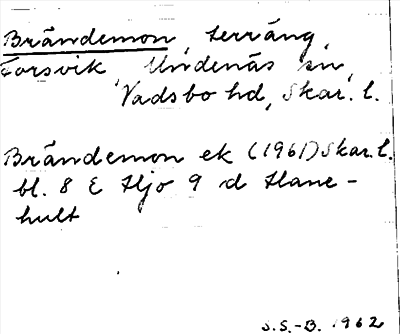 Brändemon, terräng,
Forsvik, Undenäs sn,
Vadsbo hd, Skar. l.
Brändemon ek (1961) Skar. l.
bl. 8 E Hjo 9 d Hane-
hult
S.S.-B. 1962